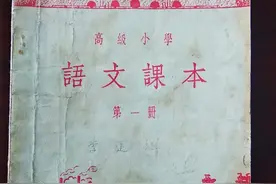 高級小學
語文課本
第一冊